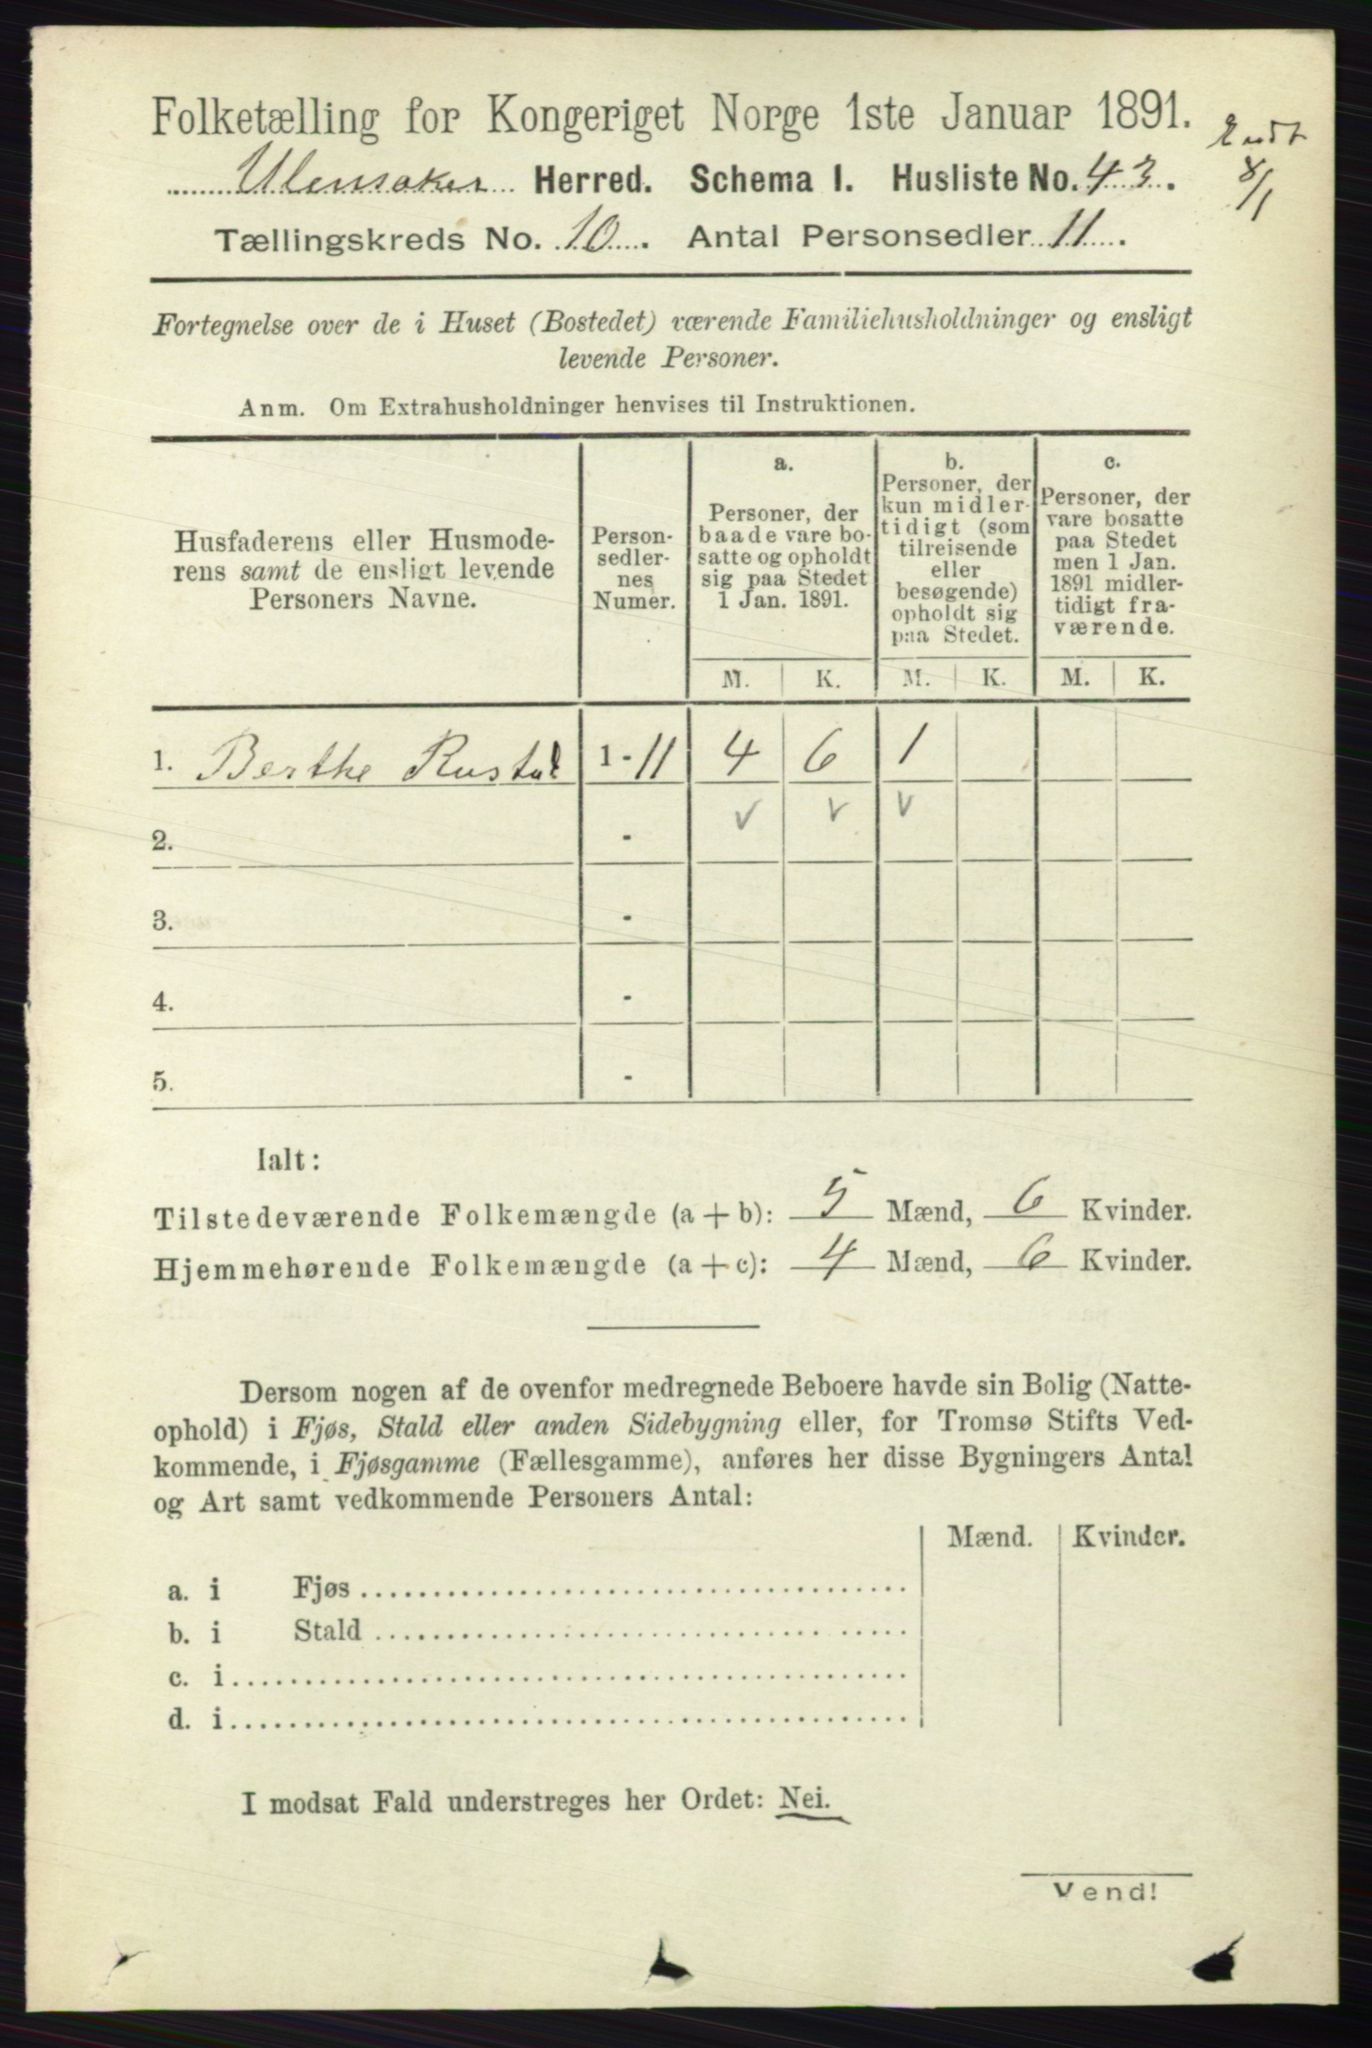 Folketælling for Kongeriget Norge 1ste Januar 1891.
Ullensaker Herred. Schema I. Husliste No. 43.
8/1
Tællingskreds No. 10. Antal Personsedler 11.
Fortegnelse over de i Huset (Bostedet) værende Familiehusholdninger og ensligt
levende Personer.
Anm. Om Extrahusholdninger henvises til Instruktionen.
Husfaderens eller Husmode-
rens samt de ensligt levende
Personers Navne.
Person-
sedler-
nes
Numer.
a.
Personer, der
baade vare bo-
satte og opholdt
sig paa Stedet
1 Jan. 1891.
b.
Personer, der
kun midler-
tidigt (som
tilreisende
eller
besøgende)
opholdt sig
paa Stedet.
c.
Personer, der
vare bosatte
paa Stedet
men 1 Jan.
1891 midler-
tidigt fra-
værende.
M. K. M. K. M. K.
1. Berthe Rustad 1 - 11 4 6 1
2. -
3. -
4. -
5. -
Ialt:
Tilstedeværende Folkemængde (a + b): 5 Mænd, 6 Kvinder.
Hjemmehørende Folkemængde (a + c): 4 Mænd, 6 Kvinder.
Dersom nogen af de ovenfor medregnede Beboere havde sin Bolig (Natte-
ophold) i Fjøs, Stald eller anden Sidebygning eller, for Tromsø Stifts Ved-
kommende, i Fjøsgamme (Fællesgamme), anføres her disse Bygningers Antal
og Art samt vedkommende Personers Antal:
Mænd. Kvinder.
a. i Fjøs
b. i Stald
c. i
d. i
I modsat Fald understreges her Ordet: Nei.
Vend!